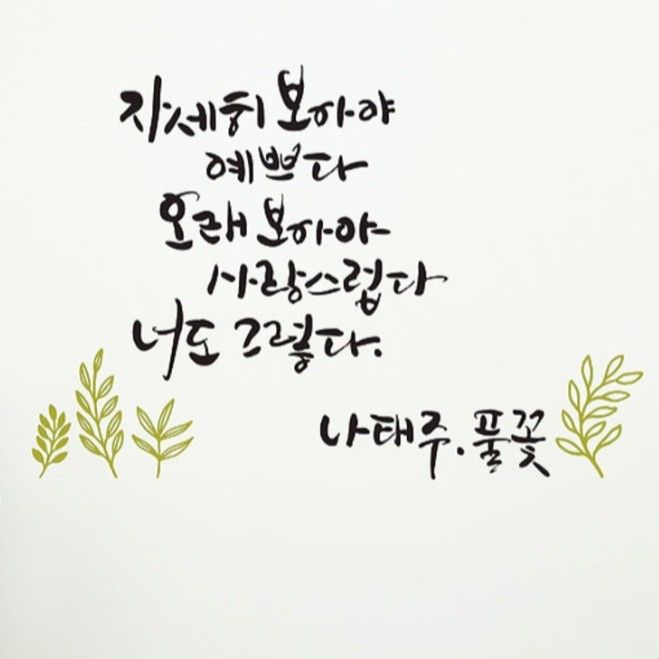 자세히 보아야
예쁘다
오래 보아야
사랑스럽다
너도 그렇다.
나태주.풀꽃